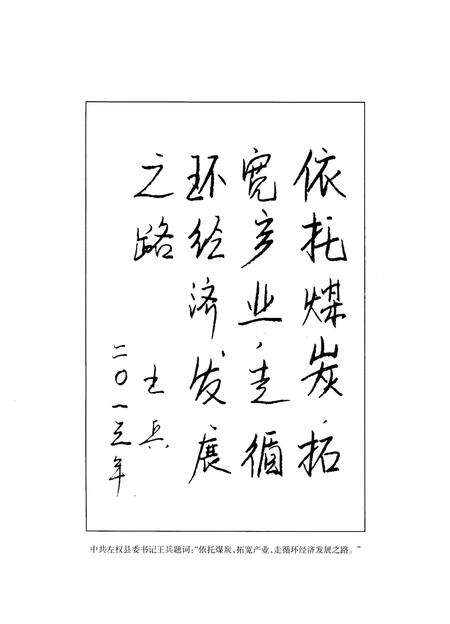 依托煤炭拓
宽产业，走循
环经济发展
之路
王兵
二〇一三年
中共左权县委书记王兵题词：“依托煤炭，拓宽产业，走循环经济发展之路。”